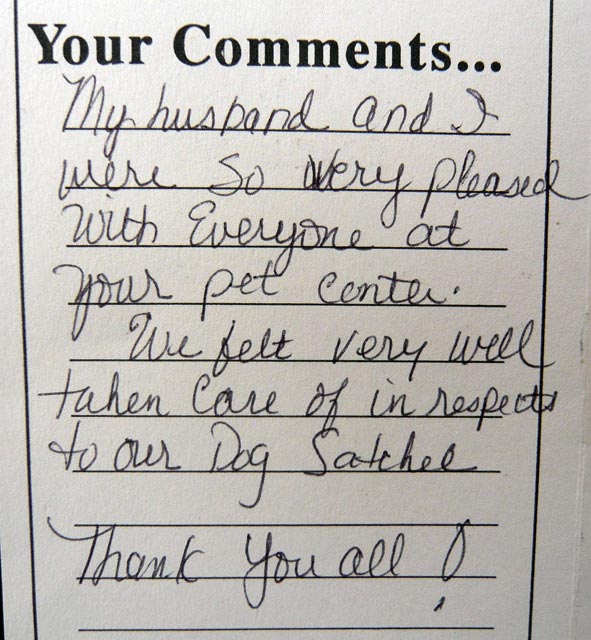 Your Comments...
My husband and I
were so very pleased
with Everyone at
your pet center.
We felt very well
taken care of in respects
to our Dog Satchel
Thank You all!